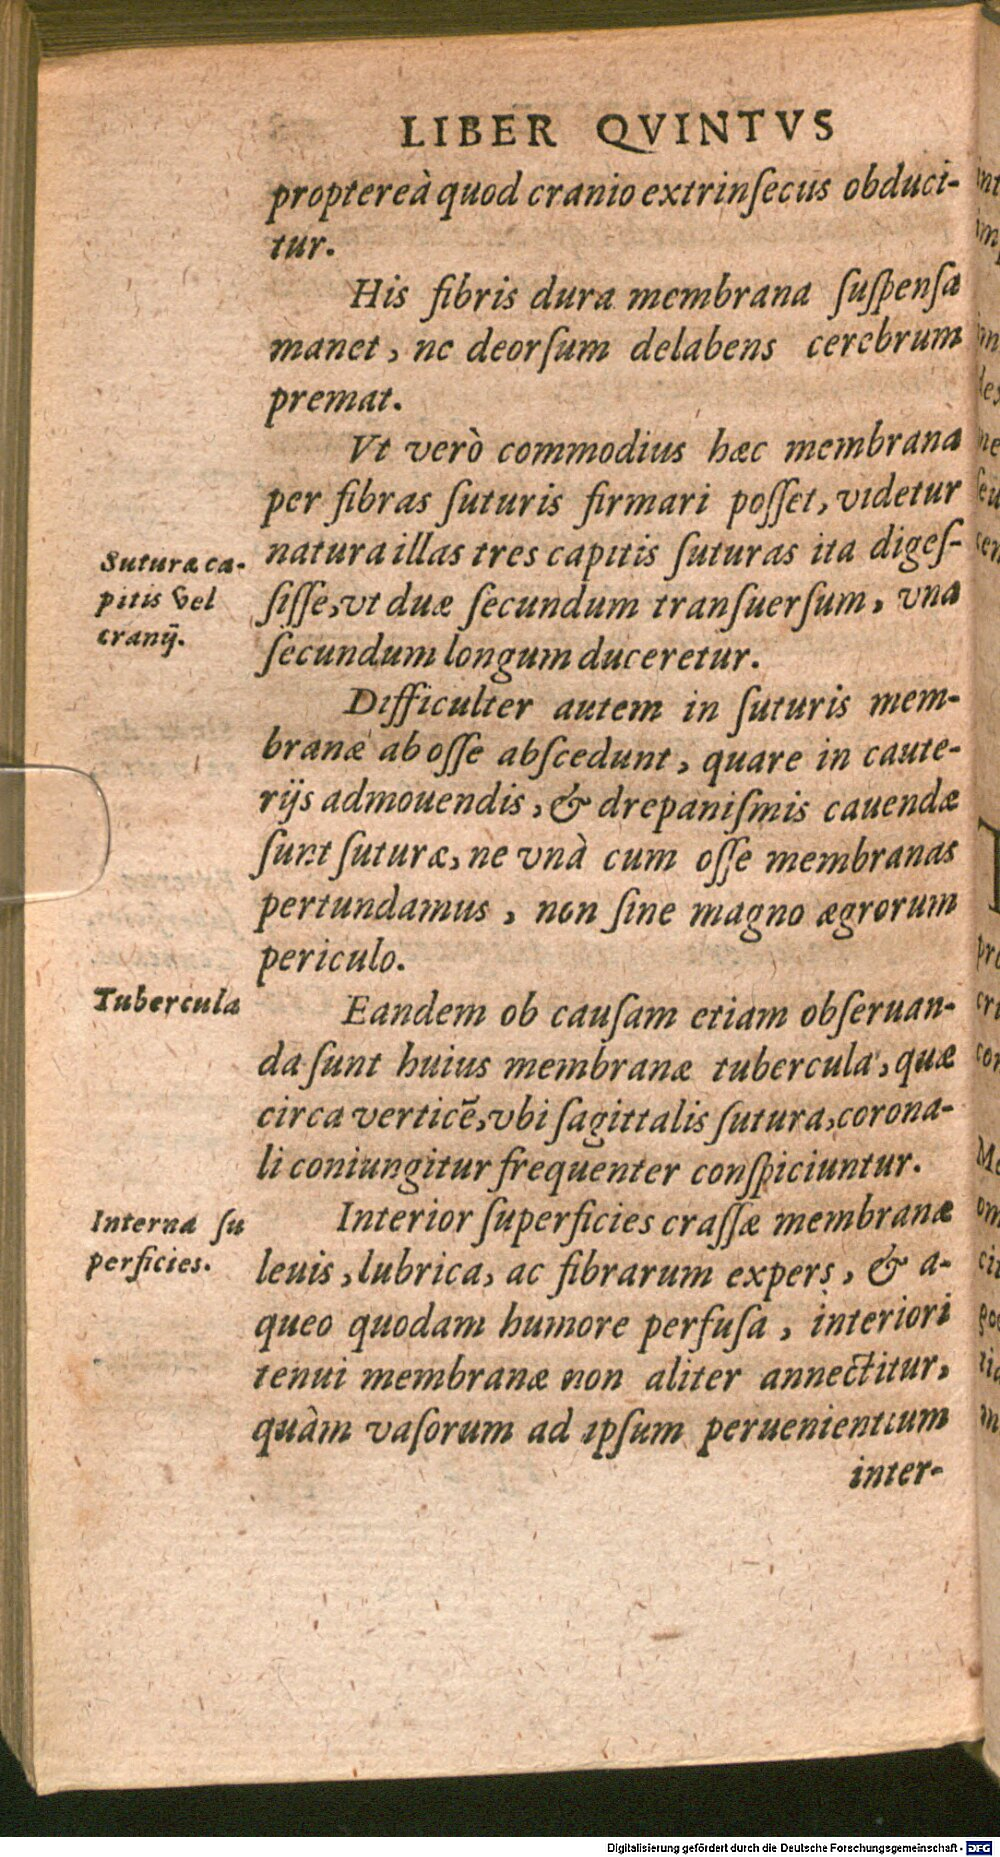 LIBER QVINTVS
propter eà quod cranio extrinſecus obduci-
tur.
His fibris dura membrana ſuſpenſa
manet, ne deorſum delabens cerebrum
premat.
Vt verò commodius hæc membrana
per fibras ſuturis firmari poſſet, videtur
natura illas tres capitis ſuturas ita digeſ-
ſiſſe, vt duæ ſecundum tranſuerſum, vna
ſecundum longum duceretur.
Suturæ ca-
pitis vel
cranij.
Difficulter autem in ſuturis mem-
branæ ab oſſe abſcedunt, quare in caute-
rijs admouendis, & drepaniſmis cauendæ
ſunt ſuturæ, ne vnà cum oſſe membranas
pertundamus, non ſine magno ægrorum
periculo.
Tubercula
Eandem ob cauſam etiam obſeruan-
da ſunt huius membranæ tubercula, quæ
circa verticē, vbi ſagittalis ſutura, corona-
li coniungitur frequenter conſpiciuntur.
Interna ſu
perficies.
Interior ſuperficies craſſæ membranæ
leuis, lubrica, ac fibrarum expers, & a-
queo quodam humore perfuſa, interiori
tenui membranæ non aliter annectitur,
quàm vaſorum ad ipſum peruenientium
inter-
Digitalisierung gefördert durch die Deutsche Forschungsgemeinschaft - DFG